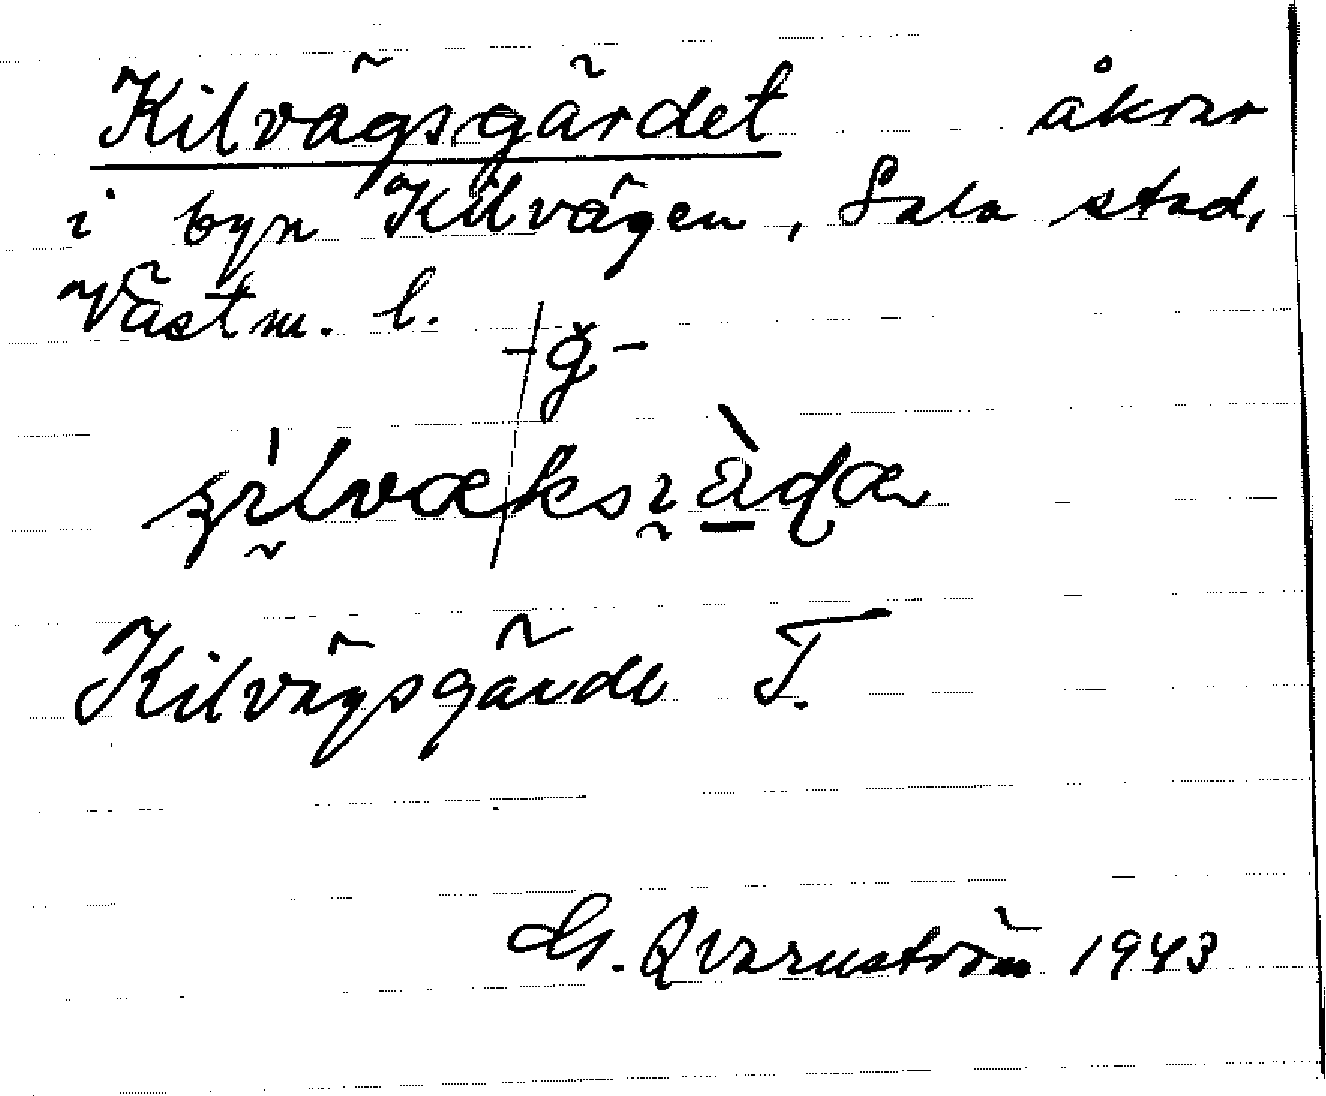 Kilvägsgärdet åkrar
i byn Kilvägen, Sala stad,
Västm. l.
-g̈-
Kilvägsgärde T.
G. Qvarnström 1943